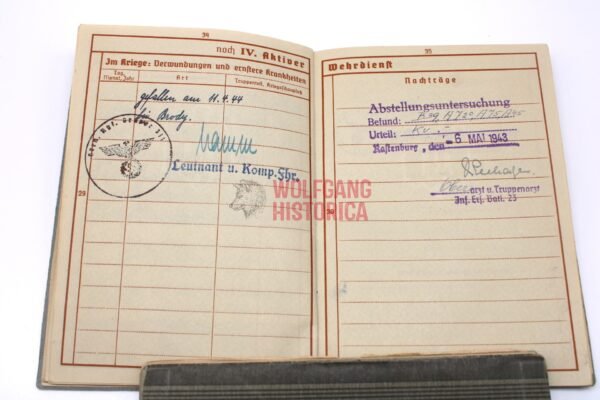 34
noch IV. Aktiver
Im Kriege: Verwundungen und ernstere Krankheiten
Tag, Monat, Jahr
Ort
Truppenteil
gefallen am 11.4.44
bei Brody.
Hamm
Leutnant u. Komp. Fhr.
29
WOLFGANG
HISTORICA
35
Wehrdienst
Nachträge
Abstellungsuntersuchung
Befund:
Urteil: Kv.-
Rastenburg, den 6. MAI 1943
arzt u. Truppenarzt
Inf. Ers. Batl. 23
30